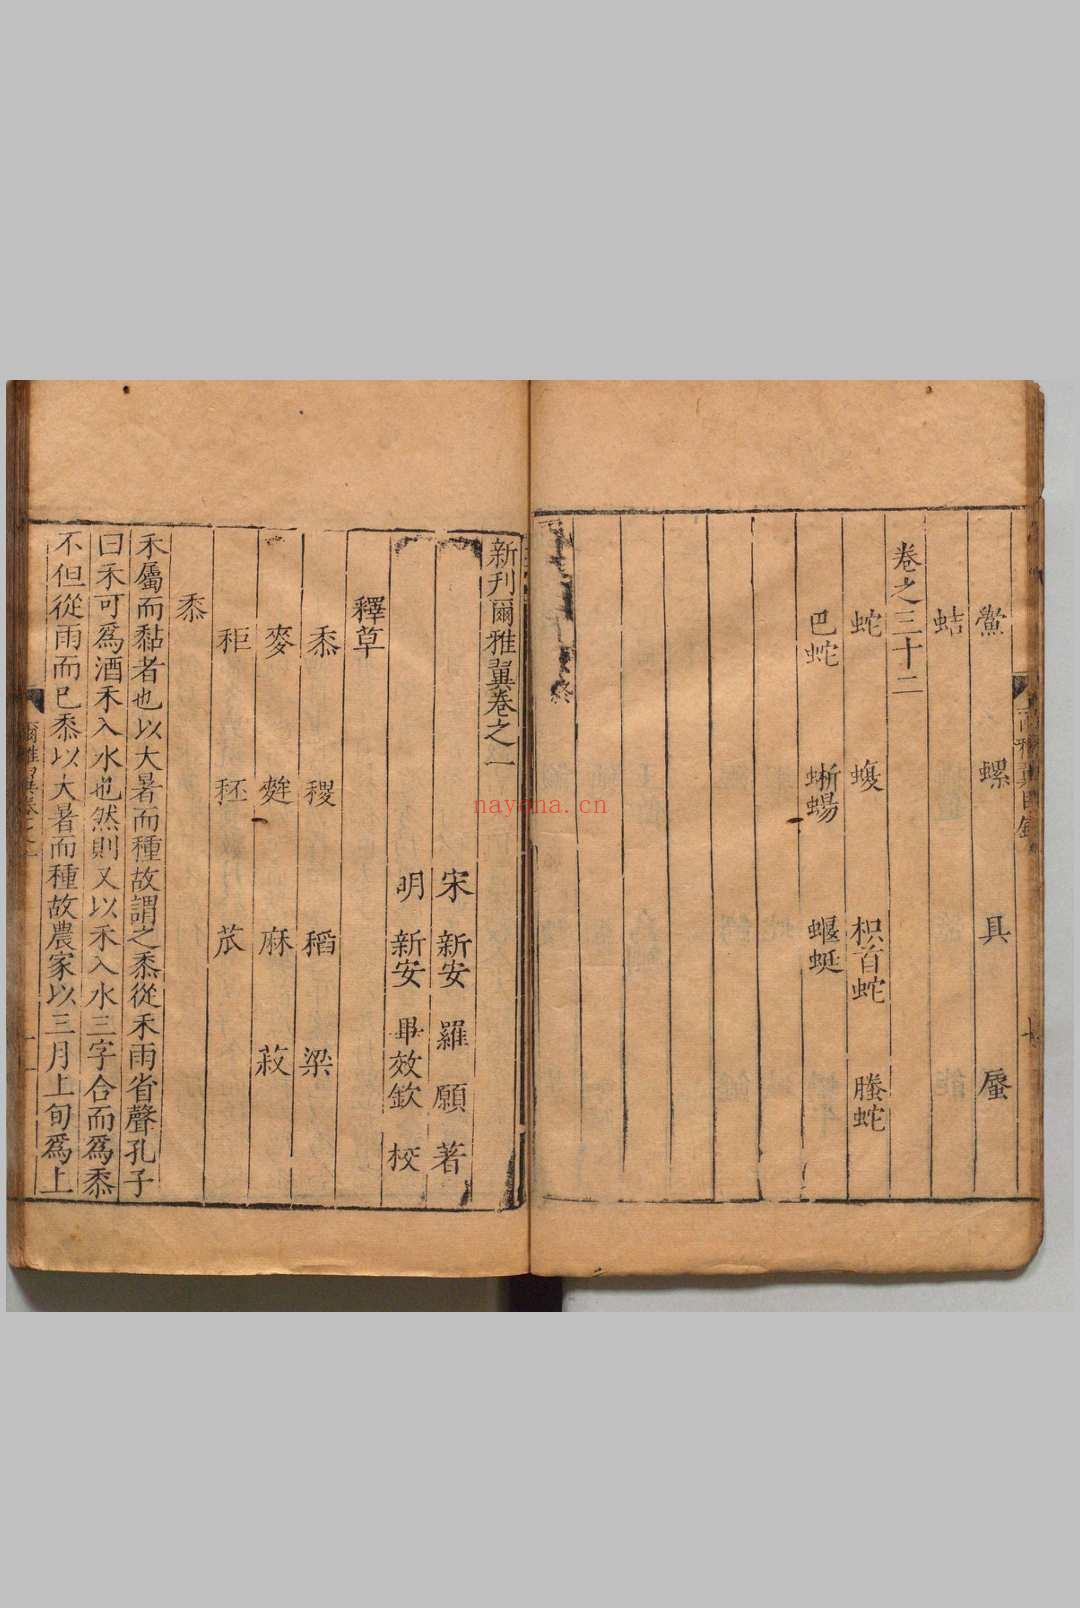 鱟 螺 貝 蜃
蛣
卷之三十二
蛇 蝮 枳首蛇 螣蛇
巴蛇 蜥蜴 蝘蜓
終
新刊爾雅翼卷之一
宋 新安 羅 願 著
明 新安 畢效欽 校
釋草
黍 稷 稻 粱
麥 麰 麻 菽
秬 秠 苽
黍
禾屬而黏者也以大暑而種故謂之黍從禾雨省聲孔子
曰禾可爲酒禾入水也然則又以禾入水三字合而爲黍
不但從雨而已黍以大暑而種故農家以三月上旬爲上
爾雅翼卷之一
nayana.cn